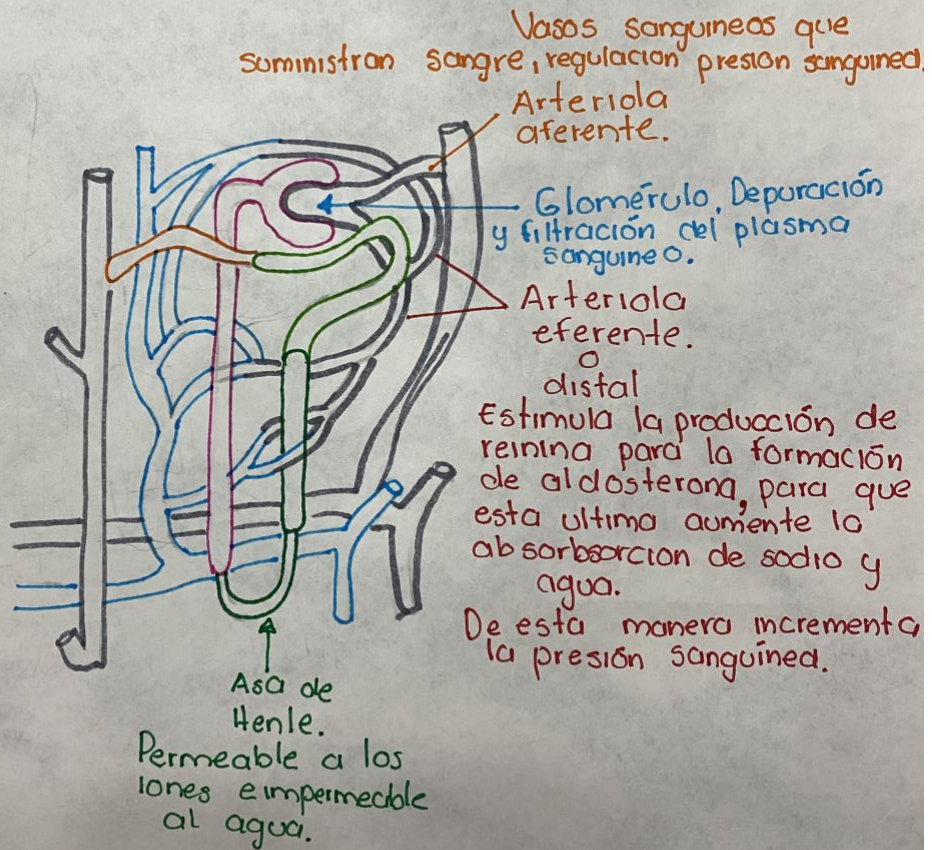 Vasos sanguineos que
suministran sangre, regulacion presion sanguinea.
Arteriola
aferente.
Glomérulo. Depuración
y filtración del plasma
sanguineo.
Arteriola
eferente.
o
distal
Estimula la producción de
reinina para la formación
de aldosterona, para que
esta ultima aumente la
absorbsorcion de sodio y
agua.
De esta manera incrementa
la presión sanguínea.
Asa de
Henle.
Permeable a los
iones e impermeable
al agua.